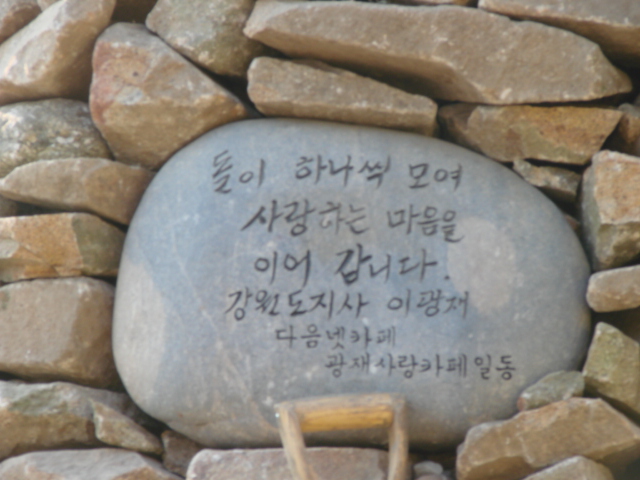 돌이 하나씩 모여
사랑하는 마음을
이어 갑니다.
강원도지사 이광재
다음넷카페
광재사랑카페일동